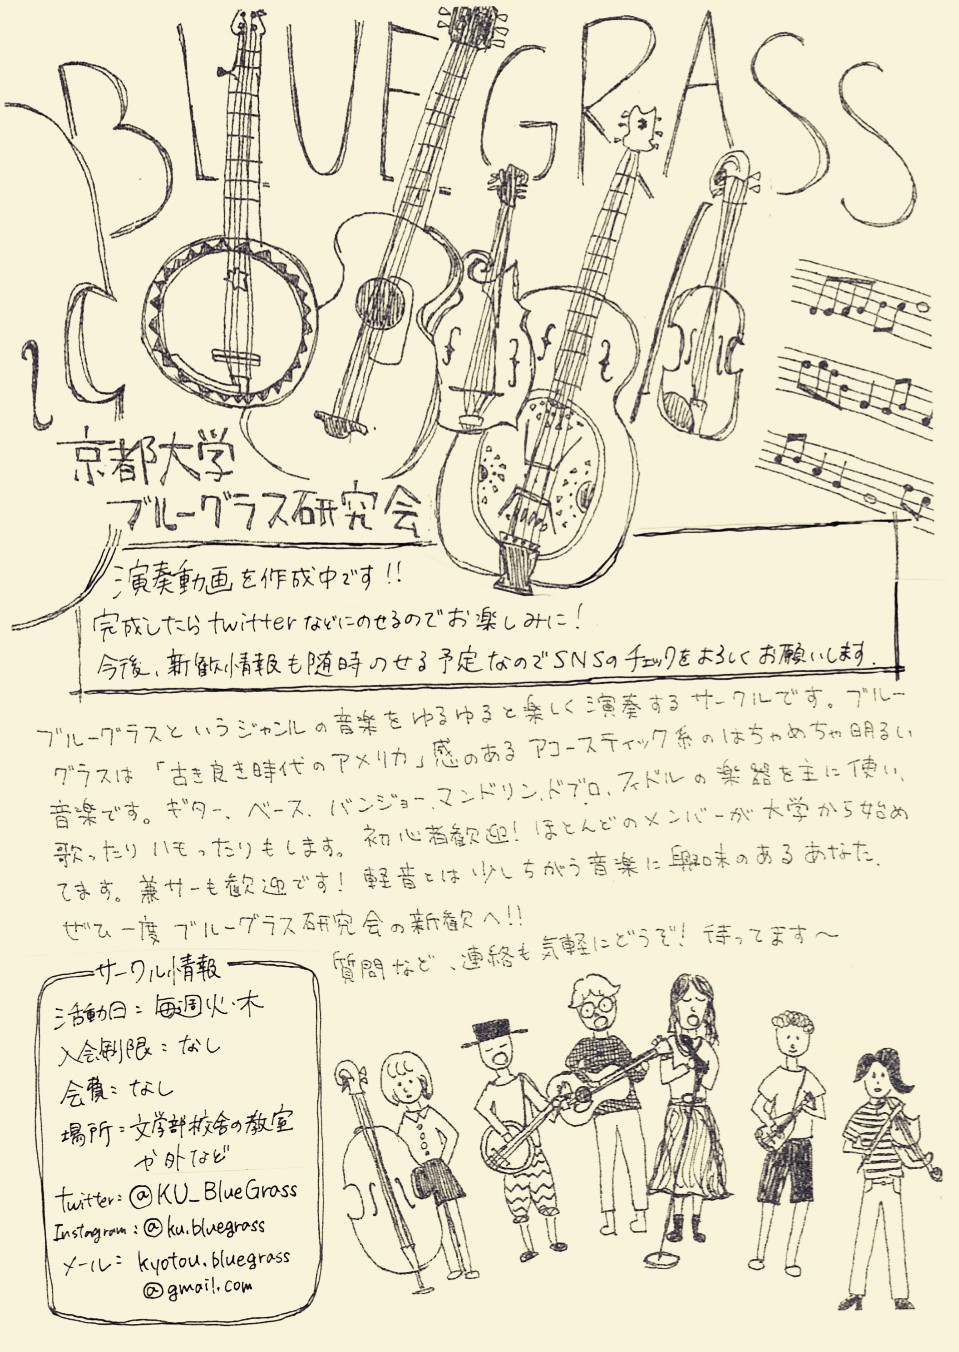 BLUEGRASS
京都大学
ブルーグラス研究会
演奏動画を作成中です!!
完成したらtwitterなどにのせるのでお楽しみに!
今後、新歓情報も随時のせる予定なのでSNSのチェックをよろしくお願いします.
ブルーグラスというジャンルの音楽をゆるゆると楽しく演奏するサークルです。ブルー
グラスは「古き良き時代のアメリカ」感のあるアコースティック系のはちゃめちゃ明るい
音楽です。ギター、ベース、バンジョー、マンドリン、ドブロ、フィドルの楽器を主に使い、
歌ったりハモったりもします。初心者歓迎!ほとんどのメンバーが大学から始め
てます。兼サーも歓迎です!軽音とは少しちがう音楽に興味のあるあなた、
ぜひ一度ブルーグラス研究会の新歓へ!!
質問など、連絡も気軽にどうぞ!待ってます〜
サークル情報
活動日:毎週火・木
入会制限:なし
会費:なし
場所:文学部校舎の教室
や外など
twitter:@KU_BlueGrass
Instagram:@ku.bluegrass
メール:kyotou.bluegrass
@gmail.com